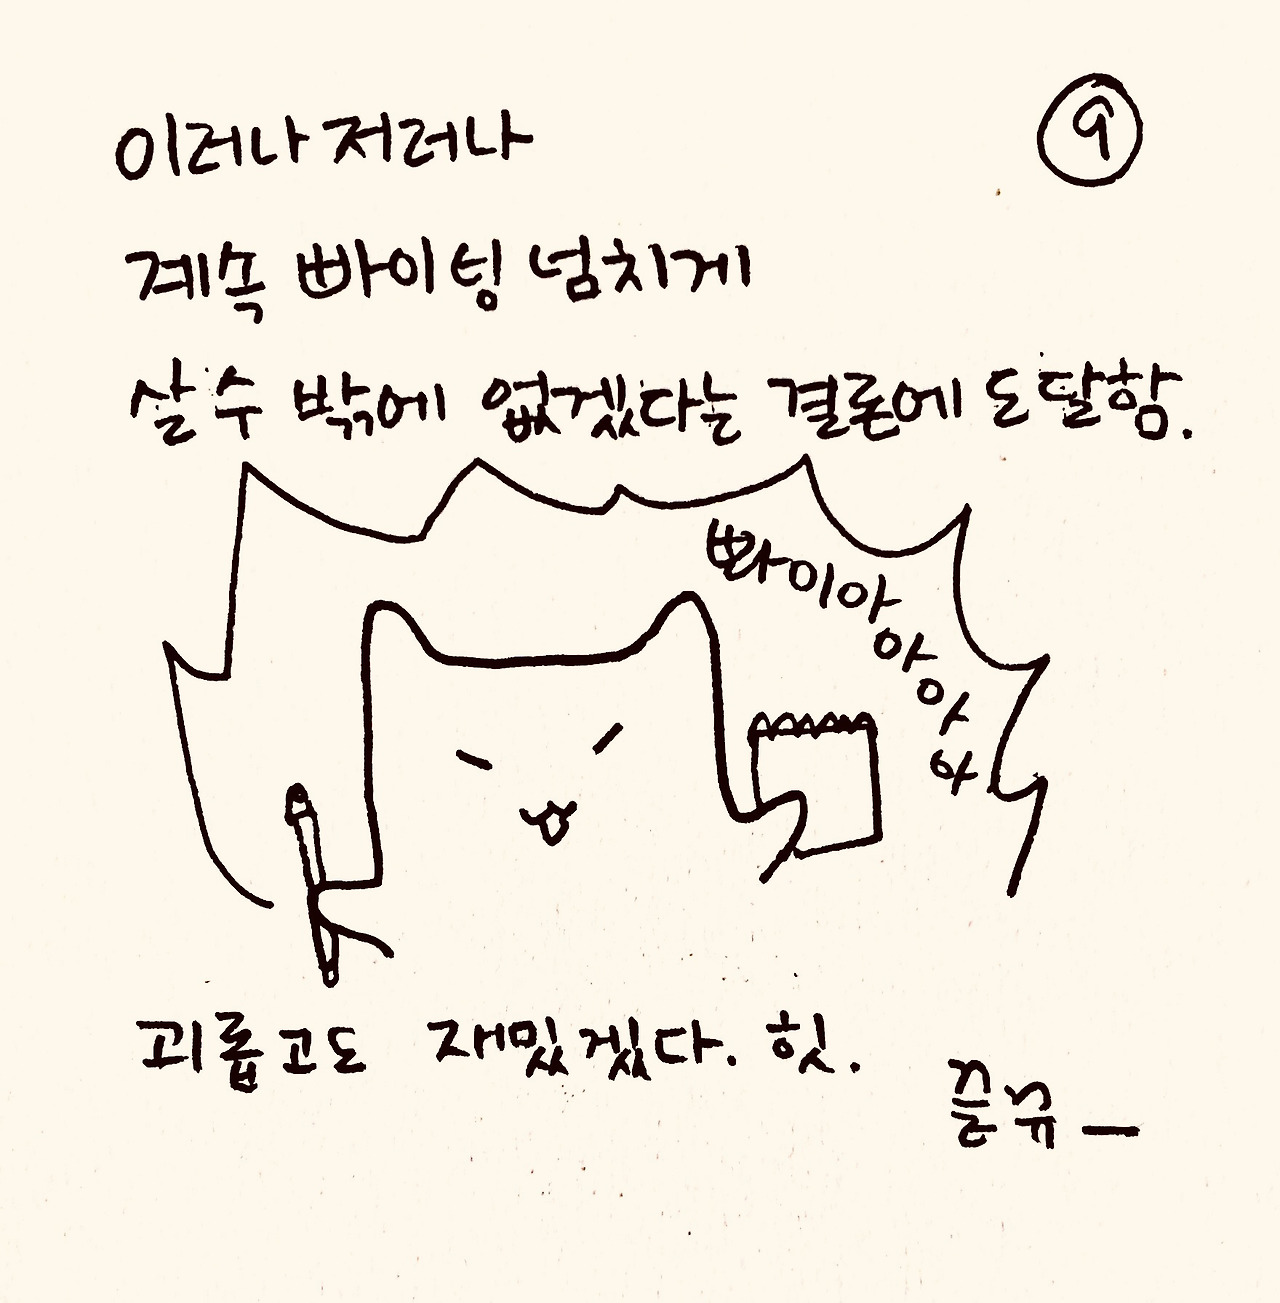 이러나저러나
⑨
계속 빠이팅 넘치게
살수 밖에 없겠다는 결론에 도달함.
빠이아아아아
괴롭고도 재밌겠다. 힛.